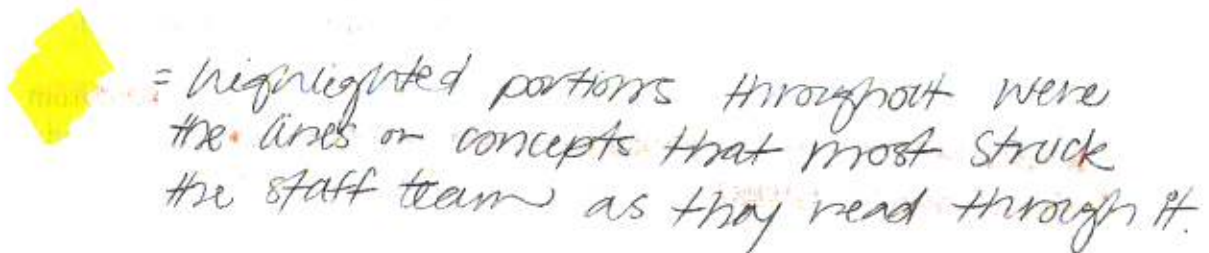 = highlighted portions throughout were
the lines or concepts that most struck
the staff team as they read through it.